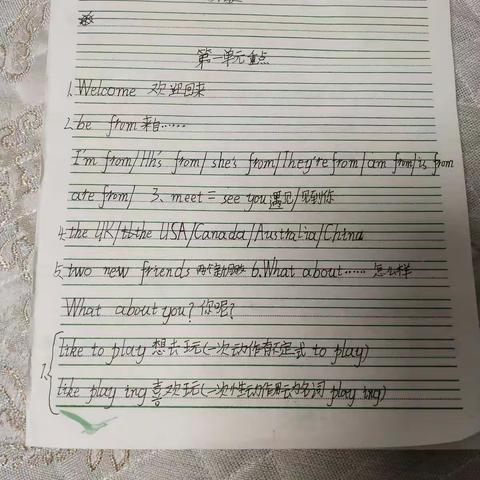 第一单元重点
1. Welcome 欢迎回来
2. be from 来自……
I'm from/Hh's from/she's from/They're from/am from/is from
are from/ 3、meet = see you 遇见/见到你
4. the UK/tthe USA/Canada/Australia/China
5. two new friends 两个新朋友 6. What about…… 怎么样
What about you? 你呢?
7. like to play 想去玩(一次动作有不定式 to play)
like play ing 喜欢玩(一次性动作用动名词 play ing)